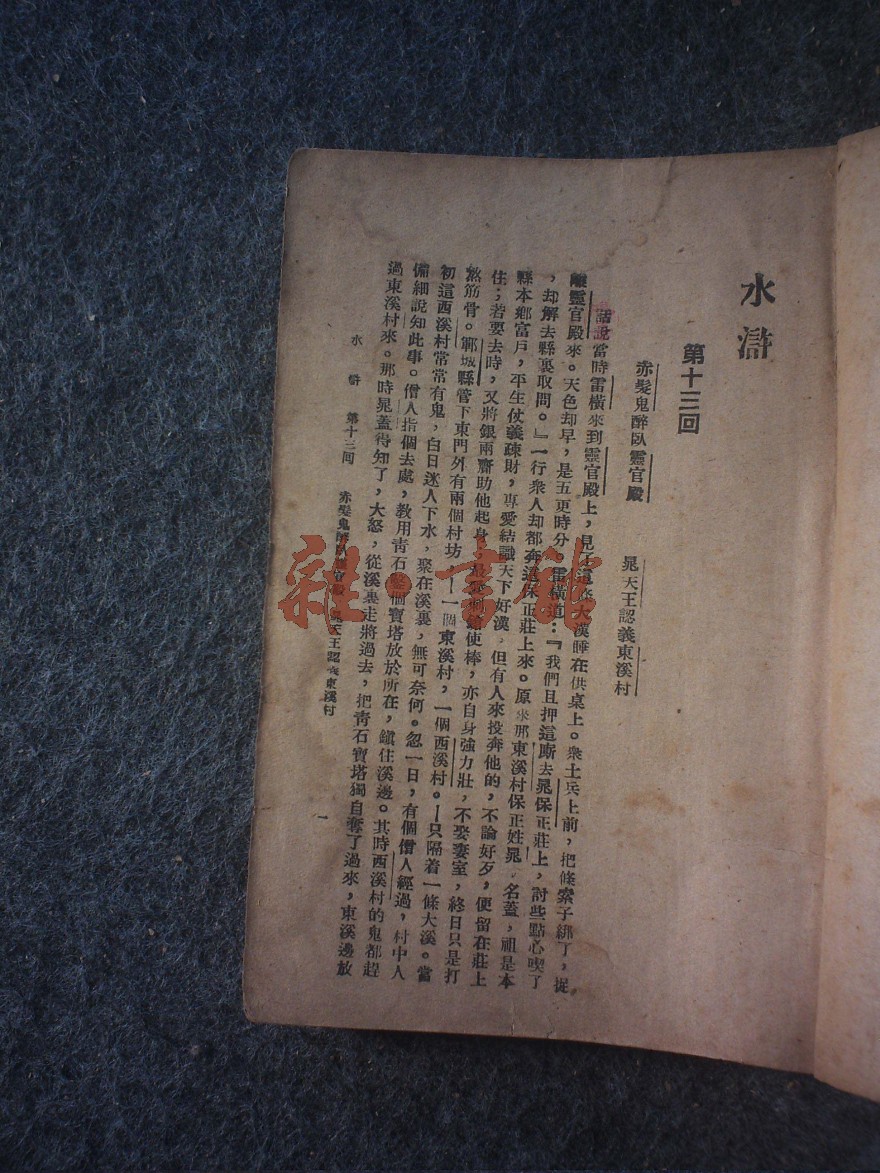 水滸
第十三回
赤髮鬼醉臥靈官殿 晁天王認義東溪村
話說當時雷橫來到靈官殿上，見了這條大漢睡在供桌上。衆土兵上前，把條索子綁了，捉
離靈官殿來。天色却早，是五更時分。雷橫道：『我們且押這廝去晁保正莊上，討些點心喫了
，却解去縣裏取問。』一行衆人却都奔這保正莊上來。原來那東溪村保正姓晁，名蓋，祖是本
縣本鄉富戶，平生仗義疎財，專愛結識天下好漢。但有人來投奔他的，不論好歹，便留在莊上
住；若要去時，又將銀兩齎助他起身；最愛刺鎗使棒，亦自身強力壯，不娶妻室，終日只是打
熬筋骨。鄆城縣管下東門外有兩個村坊—一個東溪村，一個西溪村。—只隔着一條大溪。當
初這西溪村常常有鬼，白日迷人下水，聚在溪裏，無可奈何。忽一日，有個僧人經過，村中人
備細說知此事。僧人指個去處，教用靑石鑿個寶塔放於所在，鎭住溪邊。其時西溪村的鬼都趕
過東溪村來。那時晁蓋得知了，大怒，從溪裏走將過去，把靑石寶塔獨自奪了過來，東溪邊放
水滸 第十三回 赤髮鬼醉臥靈官殿 晁天王認義東溪村 一
雜·書館